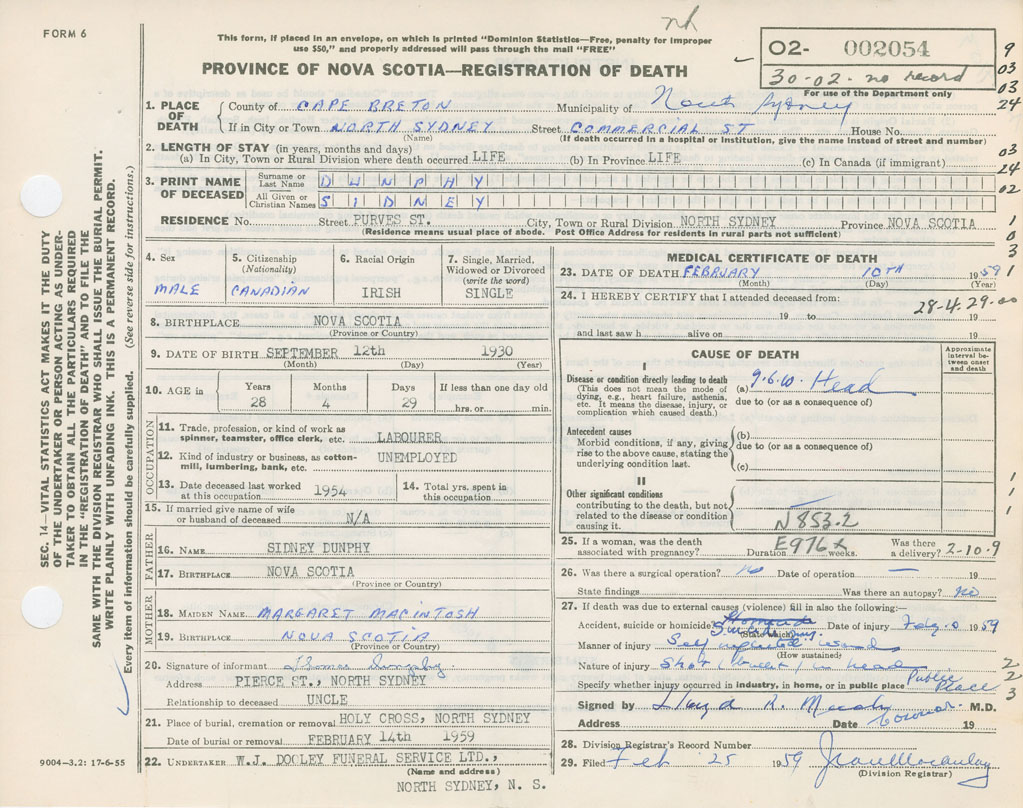 nh
FORM 6
This form, if placed in an envelope, on which is printed "Dominion Statistics—Free, penalty for improper
use $50," and properly addressed will pass through the mail "FREE"
PROVINCE OF NOVA SCOTIA—REGISTRATION OF DEATH
02- 002054
30-02- no record
For use of the Department only
9
03
03
24
03
24
02
1
0
3
1
1. PLACE OF DEATH
County of CAPE BRETON Municipality of North Sydney
If in City or Town NORTH SYDNEY Street COMMERCIAL ST House No.
(Name) (If death occurred in a hospital or institution, give the name instead of street and number)
2. LENGTH OF STAY (in years, months and days)
(a) In City, Town or Rural Division where death occurred LIFE (b) In Province LIFE (c) In Canada (if immigrant)
3. PRINT NAME OF DECEASED
Surname or Last Name DUNPHY
All Given or Christian Names SIDNEY
RESIDENCE No. Street PURVES ST. City, Town or Rural Division NORTH SYDNEY Province NOVA SCOTIA
(Residence means usual place of abode. Post Office Address for residents in rural parts not sufficient)
4. Sex
MALE
5. Citizenship
(Nationality)
CANADIAN
6. Racial Origin
IRISH
7. Single, Married,
Widowed or Divorced
(write the word)
SINGLE
8. BIRTHPLACE NOVA SCOTIA
(Province or Country)
9. DATE OF BIRTH SEPTEMBER 12th 1930
(Month) (Day) (Year)
10. AGE in
Years 28
Months 4
Days 29
If less than one day old
hrs. or min.
OCCUPATION
11. Trade, profession, or kind of work as
spinner, teamster, office clerk, etc. LABOURER
12. Kind of industry or business, as cotton-
mill, lumbering, bank, etc. UNEMPLOYED
13. Date deceased last worked
at this occupation 1954
14. Total yrs. spent in
this occupation
15. If married give name of wife
or husband of deceased N/A
FATHER
16. NAME SIDNEY DUNPHY
17. BIRTHPLACE NOVA SCOTIA
(Province or Country)
MOTHER
18. MAIDEN NAME MARGARET MACINTOSH
19. BIRTHPLACE NOVA SCOTIA
(Province or Country)
20. Signature of informant Thomas
Address PIERCE ST., NORTH SYDNEY
Relationship to deceased UNCLE
21. Place of burial, cremation or removal HOLY CROSS, NORTH SYDNEY
Date of burial or removal FEBRUARY 14th 1959
22. UNDERTAKER W.J. DOOLEY FUNERAL SERVICE LTD.,
(Name and address)
NORTH SYDNEY, N. S.
MEDICAL CERTIFICATE OF DEATH
23. DATE OF DEATH FEBRUARY 10TH 1959
(Month) (Day) (Year)
24. I HEREBY CERTIFY that I attended deceased from: 28-4.29.00
19 to 19
and last saw h alive on 19
CAUSE OF DEATH
Approximate interval be-tween onset and death
I
Disease or condition directly leading to death
(This does not mean the mode of
dying, e.g., heart failure, asthenia,
etc. It means the disease, injury, or
complication which caused death.)
(a) Head
due to (or as a consequence of)
Antecedent causes
Morbid conditions, if any, giving
rise to the above cause, stating the
underlying condition last.
(b)
due to (or as a consequence of)
(c)
II
Other significant conditions
contributing to the death, but not
related to the disease or condition
causing it.
N853.2
1
1
1
25. If a woman, was the death
associated with pregnancy? Duration E976x weeks. Was there
a delivery? 2-10.9
26. Was there a surgical operation? No Date of operation — 19
State findings Was there an autopsy? No
27. If death was due to external causes (violence) fill in also the following:—
Accident, suicide or homicide? Homicide Date of injury 1959
Suicide
(State which)
Manner of injury Self inflicted wound
(How sustained)
Nature of injury Shot (bullet) in head
Specify whether injury occurred in industry, in home, or in public place Public
Place
2
2
3
Signed by Lloyd R. M.D.
Address Date Coroner 19
28. Division Registrar's Record Number
29. Filed Feb 25 1959
(Division Registrar)
SEC. 14—VITAL STATISTICS ACT MAKES IT THE DUTY
OF THE UNDERTAKER OR PERSON ACTING AS UNDER-
TAKER TO OBTAIN ALL THE PARTICULARS REQUIRED
IN THE "REGISTRATION OF DEATH" AND TO FILE THE
SAME WITH THE DIVISION REGISTRAR WHO SHALL ISSUE THE BURIAL PERMIT.
WRITE PLAINLY WITH UNFADING INK. THIS IS A PERMANENT RECORD.
Every item of information should be carefully supplied. (See reverse side for instructions.)
9004-3.2: 17-6-55